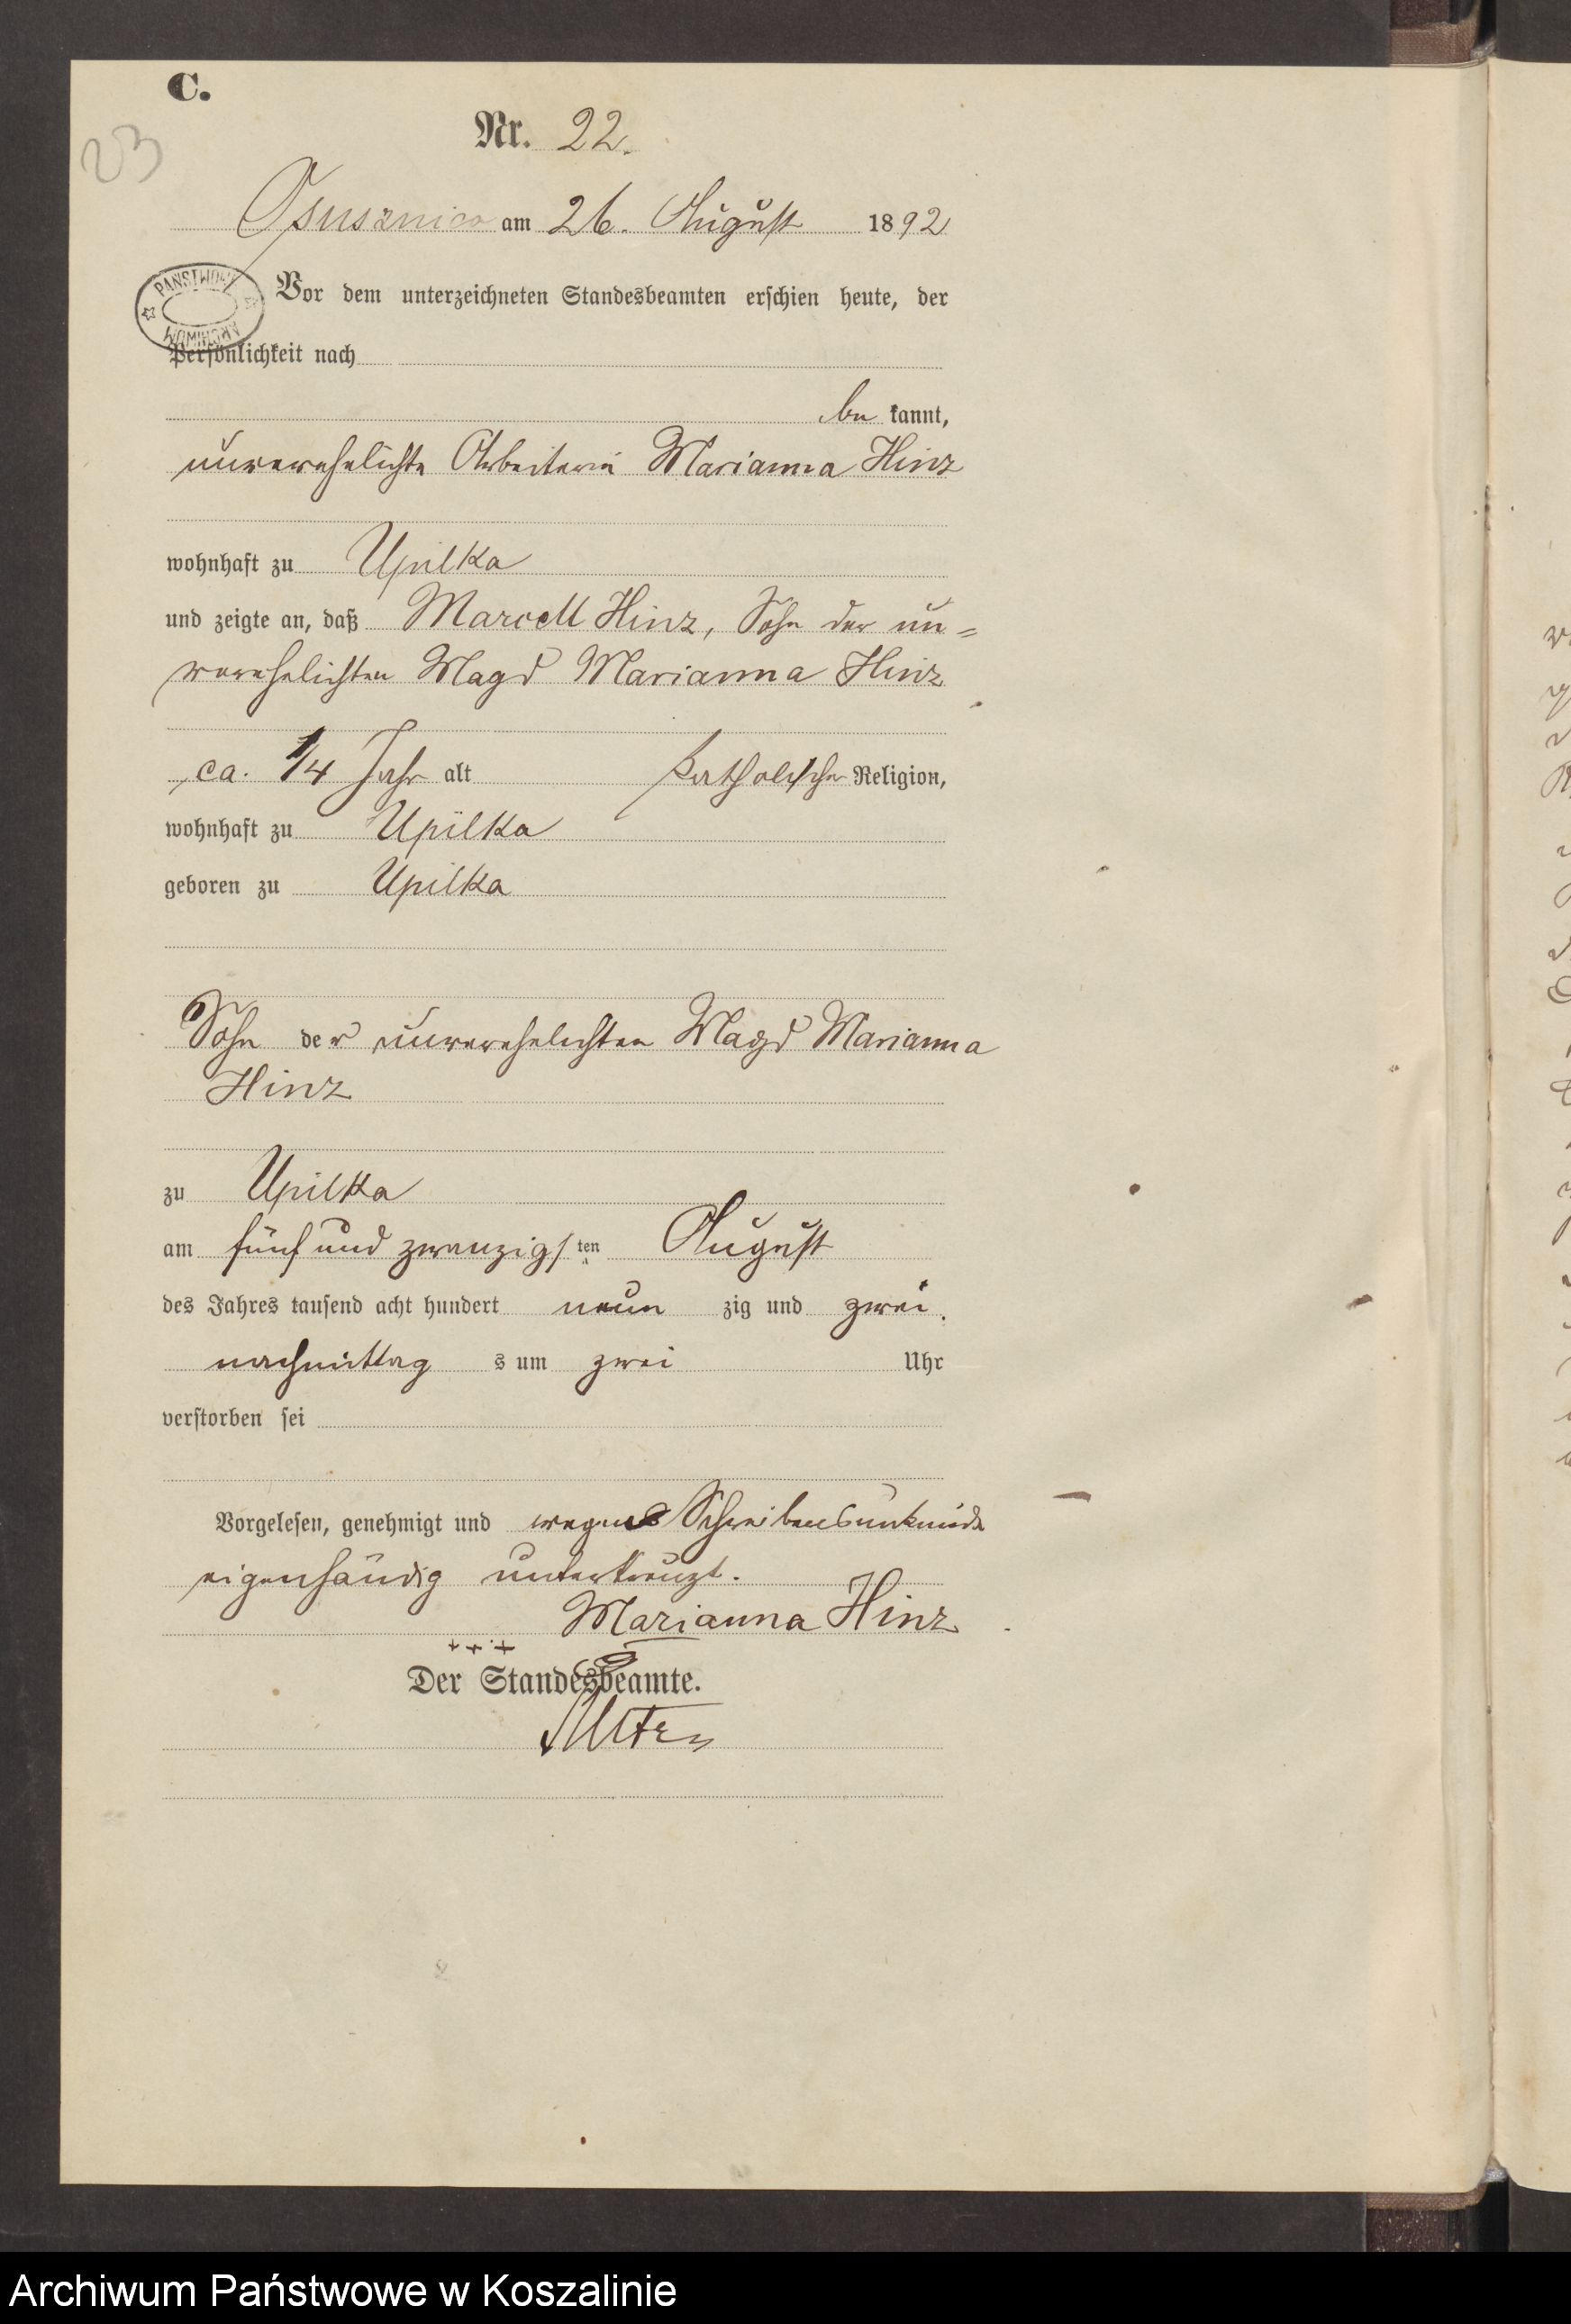 C.
23
Nr. 22.
Osusznica am 26. August 1892
PAŃSTWOWE
ARCHIWUM
Vor dem unterzeichneten Standesbeamten erschien heute, der
Persönlichkeit nach
be kannt,
unverehelichte Arbeiterin Marianna Hinz
wohnhaft zu Upilka
und zeigte an, daß Marcell Hinz, Sohn der un=
verehelichten Magd Marianna Hinz
ca. 1/4 Jahr alt katholischer Religion,
wohnhaft zu Upilka
geboren zu Upilka
Sohn der unverehelichten Magd Marianna
Hinz
zu Upilka
am fünf und zwanzigs ten August
des Jahres tausend acht hundert neun zig und zwei
nachmittag s um zwei Uhr
verstorben sei
Vorgelesen, genehmigt und wegen Schreibensunkunde
eigenhändig unterkreuzt.
Marianna Hinz
+++
Der Standesbeamte.
Archiwum Państwowe w Koszalinie